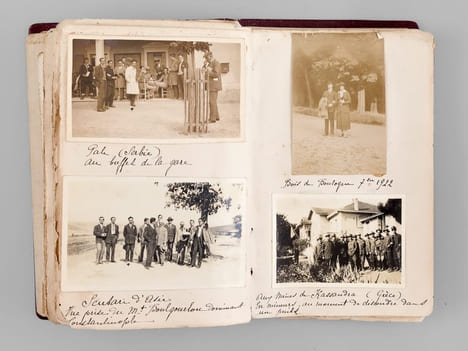 Pale (Serbie)
au buffet de la gare
Scutari d'Asie
Vue prise du Mt Boulgourlou dominant
Constantinople
Bois de Boulogne 7bre 1922
Aux Mines de Kassandra (Grèce)
En mineurs, au moment de descendre dans
un puits